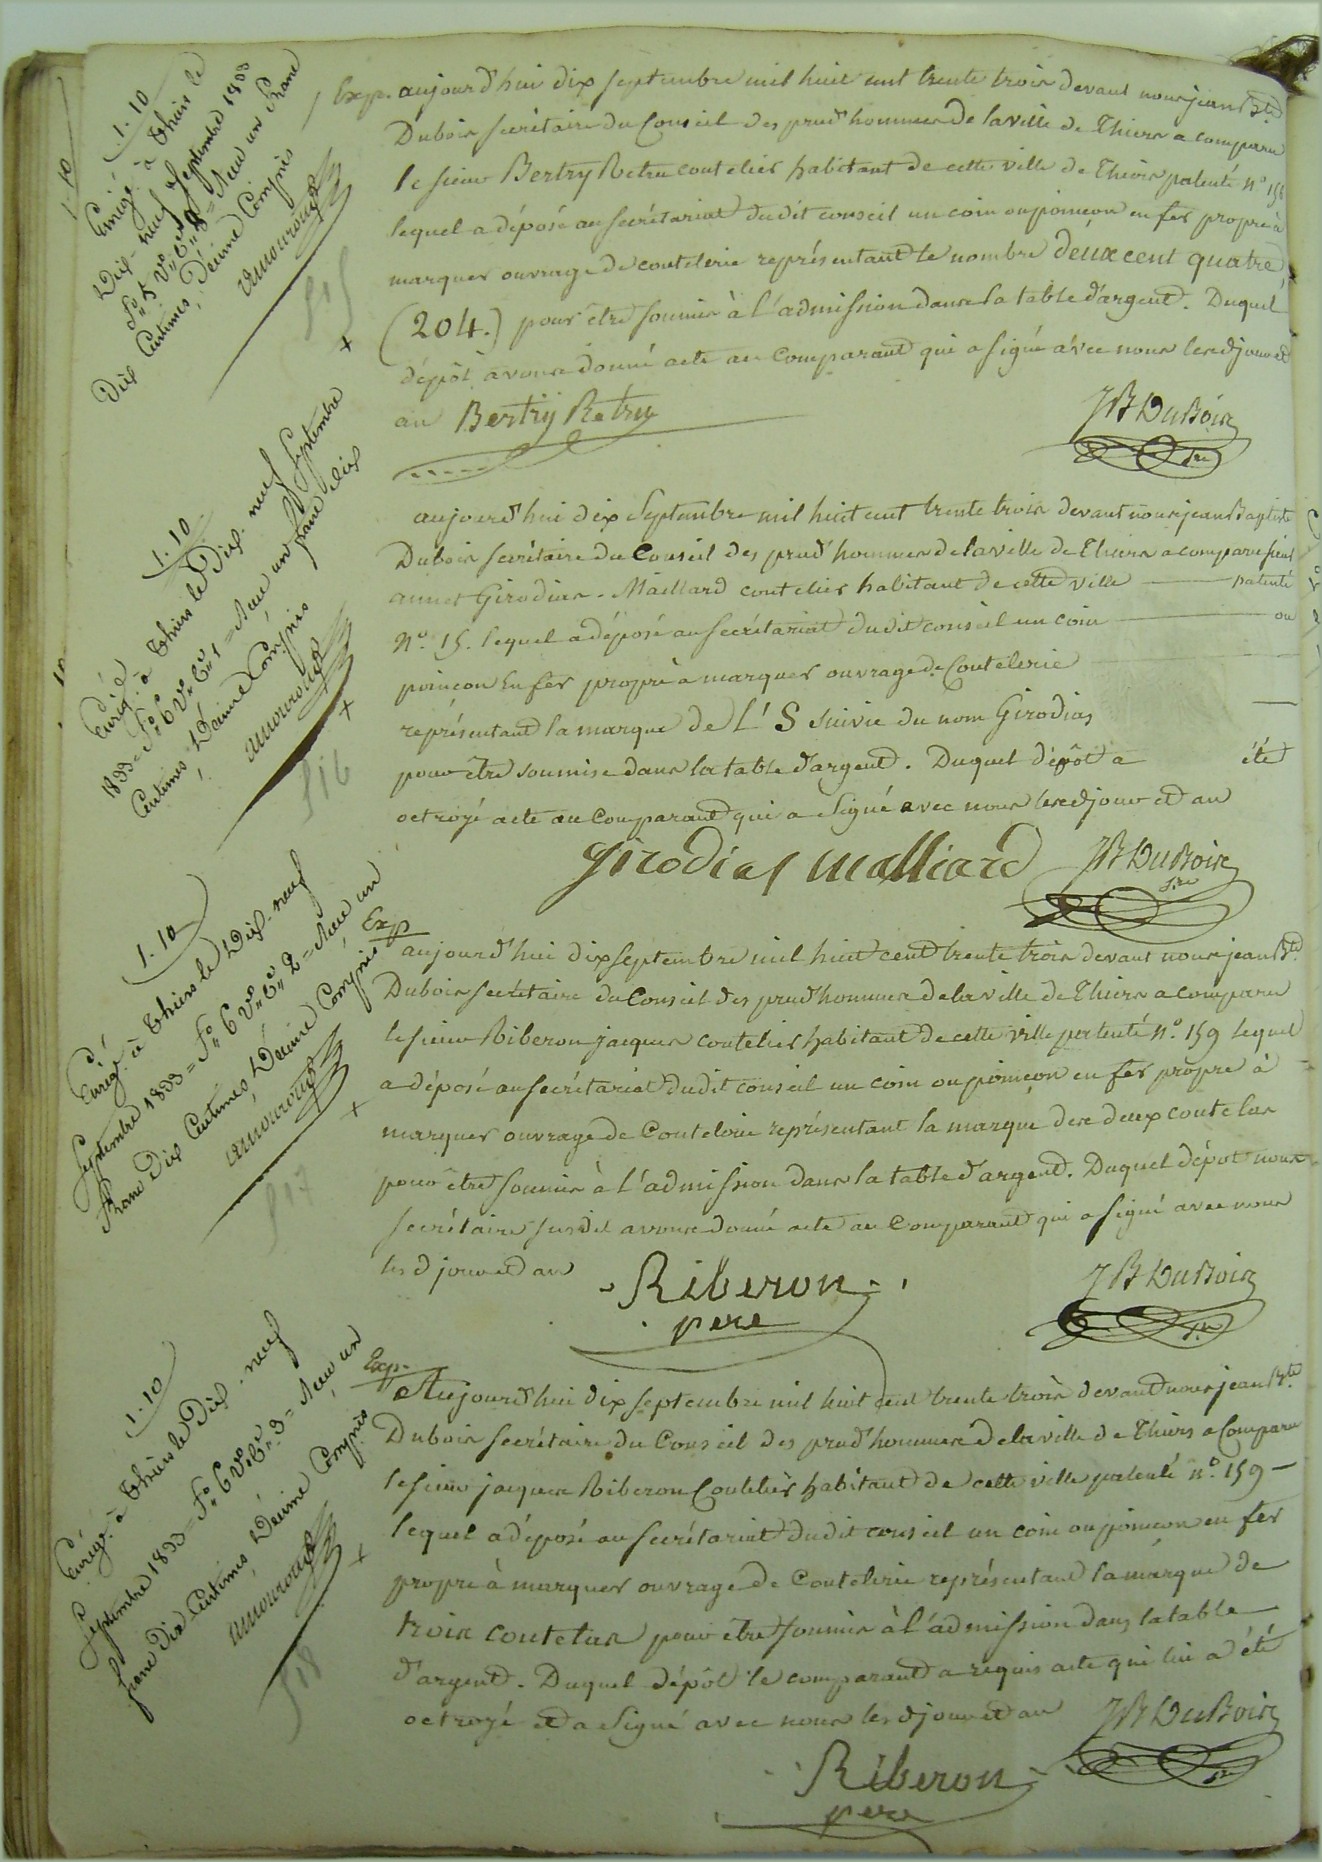 Exp. aujourd'hui dix septembre mil huit cent trente trois devant nous jean Bte
Dubois secrétaire du Conseil des prud'hommes de la ville de Thiers a comparu
le sieur Bertry Retru coutelier habitant de cette ville de Thiers patenté n°
lequel a déposé au secrétariat dudit conseil un coin ou poinçon en fer propre à
marquer ouvrage de coutelerie représentant le nombre deux cent quatre
(204.) pour être soumis à l'admission dans la table d'argent. Duquel
dépôt avons donné acte au Comparant qui a signé avec nous lesd jour et
an Bertry Retru
JB DuBois
Sre
aujourd'hui dix Septembre mil huit cent trente trois devant nous jean Baptiste
Dubois secrétaire du Conseil des prud'hommes de la ville de Thiers a comparu sieur
annet Girodias-Maillard coutelier habitant de cette ville patenté
N° 15. lequel a déposé au secrétariat dudit conseil un coin ou
poinçon en fer propre à marquer ouvrage de Coutelerie
représentant la marque de L'S suivie du nom Girodias
pour être soumise dans la table d'argent. Duquel dépôt a été
octroyé acte au Comparant qui a signé avec nous lesd jour et an
Girodias malliard
JB DuBois
Sre
Exp
aujourd'hui dix septembre mil huit cent trente trois devant nous jean Bte
Dubois secrétaire du Conseil des prud'hommes de la ville de Thiers a comparu
le sieur Riberon jacques coutelier habitant de cette ville patenté n° 159 lequel
a déposé au secrétariat dudit conseil un coin ou poinçon en fer propre à
marquer ouvrage de Coutelerie représentant la marque des deux coutelas
pour être soumis à l'admission dans la table d'argent. Duquel dépot nous
secrétaire susdit avons donné acte au Comparant qui a signé avec nous
lesd jour et an
Riberon
pere
JB DuBois
Sre
Exp.
Aujourd'hui dix septembre mil huit cent trente trois devant nous jean Bte
Dubois secrétaire du Conseil des prud'hommes de la ville de Thiers a Comparu
le sieur jacques Riberon Coutelier habitant de cette ville patenté n° 159 —
lequel a déposé au secrétariat dudit conseil un coin ou poinçon en fer
propre à marquer ouvrage de Coutelerie représentant la marque de
trois coutelas pour être soumis à l'admission dans la table
d'argent. Duquel dépôt le comparant a requis acte qui lui a été
octroyé et a signé avec nous lesd jour et an
JB DuBois
Sre
Riberon
pere
1.10
Enregé. à Thiers le
Dix-neuf Septembre 1833
F° 5 V° C° 8 = Reçu un Franc
Dix Centimes, Décime Compris
amouroux
515
1.10
Enregé. à Thiers le Dix-neuf Septembre
1833 = F° 6 V° C° 1 = Reçu un franc dix
Centimes, Décime Compris
amouroux
516
1.10
Enregé. à Thiers le Dix-neuf
Septembre 1833 = F° 6 V° C° 2 = Reçu un
Franc Dix Centimes, Décime Compris
amouroux
517
1.10
Enregé. à Thiers le Dix-neuf
Septembre 1833 = F° 6 V° C° 3 = Reçu un
franc Dix Centimes, Décime Compris
amouroux
518